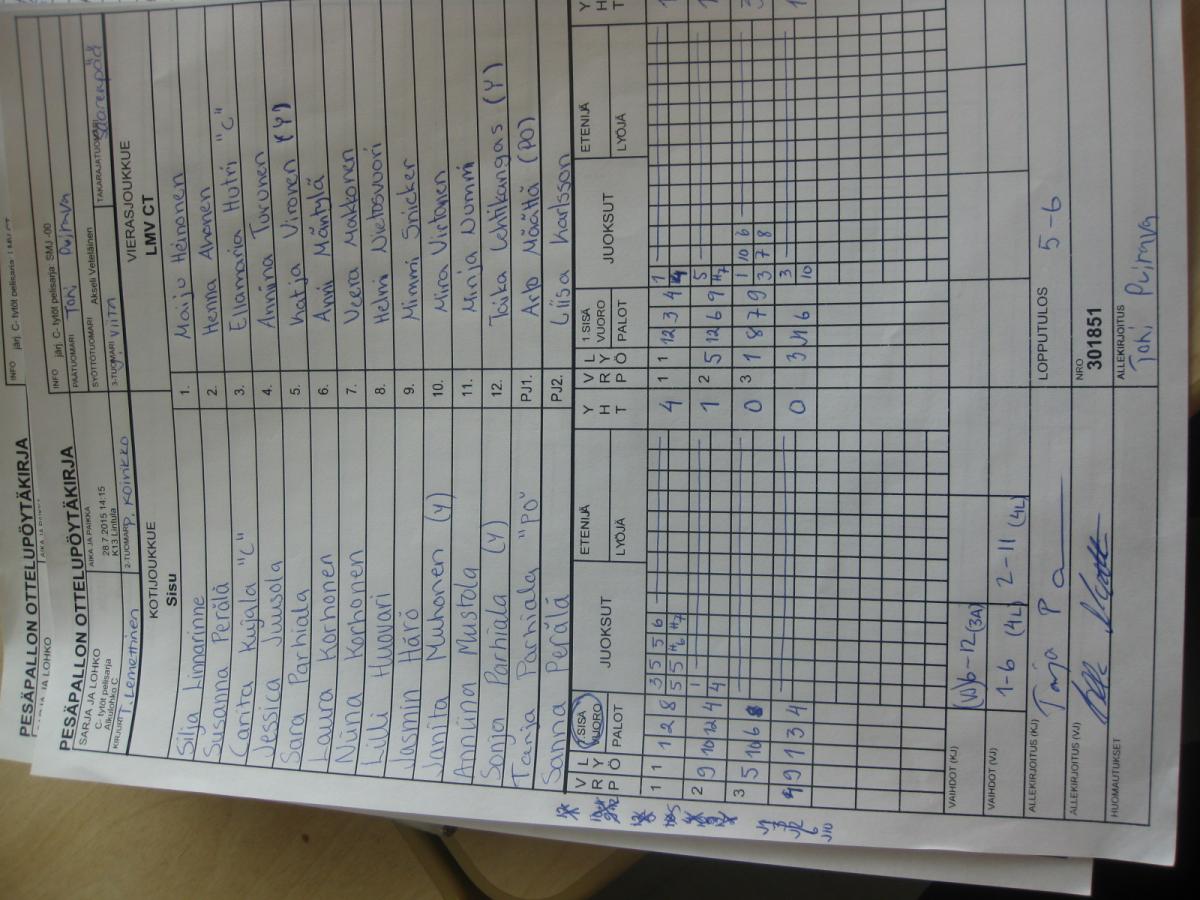 PESÄPALLON OTTELUPÖYTÄKIRJA
INFO järj. C- tytöt pelisarja
PESÄPALLON OTTELUPÖYTÄKIRJA
INFO järj. C- tytöt pelisarja: SMJ -00
SARJA JA LOHKO
C- tytöt pelisarja
Alkulohko C
AIKA JA PAIKKA
28.7.2015 14:15
K13 Lintula
PÄÄTUOMARI Toni Puimva
SYÖTTÖTUOMARI Akseli Veteläinen
KIRJURI T. Lemettinen
2-TUOMARI P. Koinkko
3-TUOMARI J. Viita
TAKARAJATUOMARI Saarenpää
KOTIJOUKKUE
Sisu
VIERASJOUKKUE
LMV CT
Silja Linnarinne 1. Maiju Heinonen
Susanna Perälä 2. Henna Ahonen
Carita Kujala "C" 3. Ellamaria Hutri "C"
Jessica Juusola 4. Anniina Turunen
Sara Parhiala 5. Katja Vironen (Y)
Laura Korhonen 6. Anni Mäntylä
Niina Korhonen 7. Veera Makkonen
Lilli Huovari 8. Helmi Nietosvuori
Jasmin Härö 9. Mimmi Snicker
Janita Muhonen (Y) 10. Mira Virtanen
Anniina Mustola 11. Minja Nummi
Sonja Parhiala (Y) 12. Taika Lehtikangas (Y)
Tanja Parhiala "PO" PJ1. Arto Määttä (PO)
Sanna Perälä PJ2. Liisa Karlsson
V R P L Y Ö 1.SISÄ VUORO PALOT JUOKSUT ETENIJÄ LYÖJÄ Y H T V R P L Y Ö 1.SISÄ VUORO PALOT JUOKSUT ETENIJÄ LYÖJÄ Y H T
1 1 1 2 8 3 5 5 6 4 1 1 12 3 4 1 1
5 5 H6 H7 4
2 9 10 12 4 1 1 2 5 12 6 9 5 1
4 H7
3 5 10 6 8 0 3 1 8 7 9 1 10 6 3
3 7 8
9 1 3 4 0 3 11 6 3 1
10
VAIHDOT (KJ) (V) 6-12 (3A)
VAIHDOT (VJ) 1-6 (4L) 2-11 (4L)
ALLEKIRJOITUS (KJ) Tanja Pa
LOPPUTULOS 5-6
ALLEKIRJOITUS (VJ)
NRO
301851
HUOMAUTUKSET
ALLEKIRJOITUS
Toni Puimva